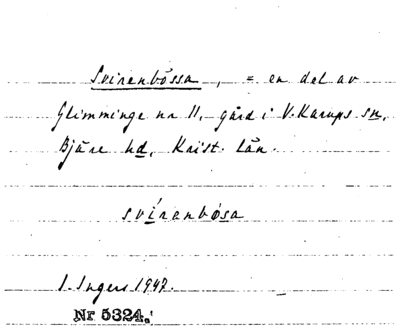 Svirenbössa, = en del av
Glimminge nr 11, gård i V. Karups sn,
Bjäre hd, Krist. län.
svírenbo̊sa
I. Ingers 1947.
Nr 5324.